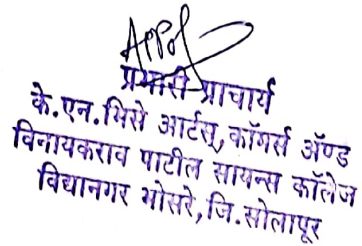 प्रभारी प्राचार्य
के. एन. भिसे आर्टस्, कॉमर्स ॲण्ड
विनायकराव पाटील सायन्स कॉलेज
विद्यानगर भोसरे, जि. सोलापूर